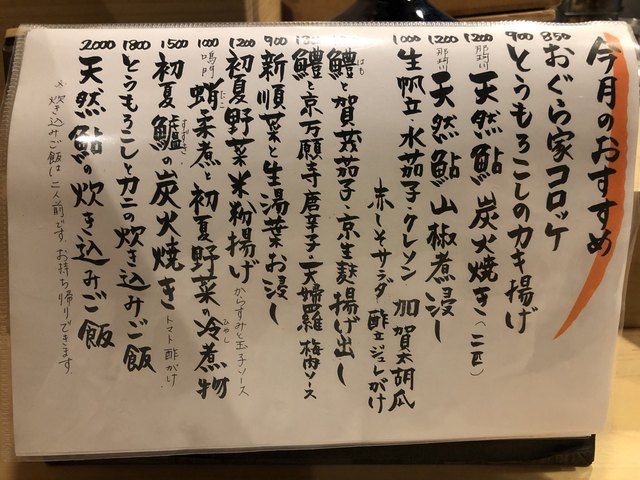 今月のおすすめ
850 おぐら家コロッケ
900 とうもろこしのカキ揚げ
1200 那珂川 天然鮎 炭火焼き(二匹)
1200 那珂川 天然鮎 山椒煮浸し
1000 生帆立・水茄子・クレソン 加賀太胡瓜
赤しそサラダ 酢立ジュレがけ
鱧と賀茂茄子・京生麩揚げ出し
はも
鱧と京万願寺唐辛子・天婦羅 梅肉ソース
900 新順菜と生湯葉お浸し
1200 初夏野菜米粉揚げ からすみと玉子ソース
1000 鳴門 蛸柔煮と初夏野菜の冷煮物
たこ
ひやし
1500 初夏 鱸の炭火焼き トマト酢がけ
すずき
1800 とうもろこしとカニの炊き込みご飯
2000 天然鮎の炊き込みご飯
※炊き込みご飯は二人前です。お持ち帰りできます。